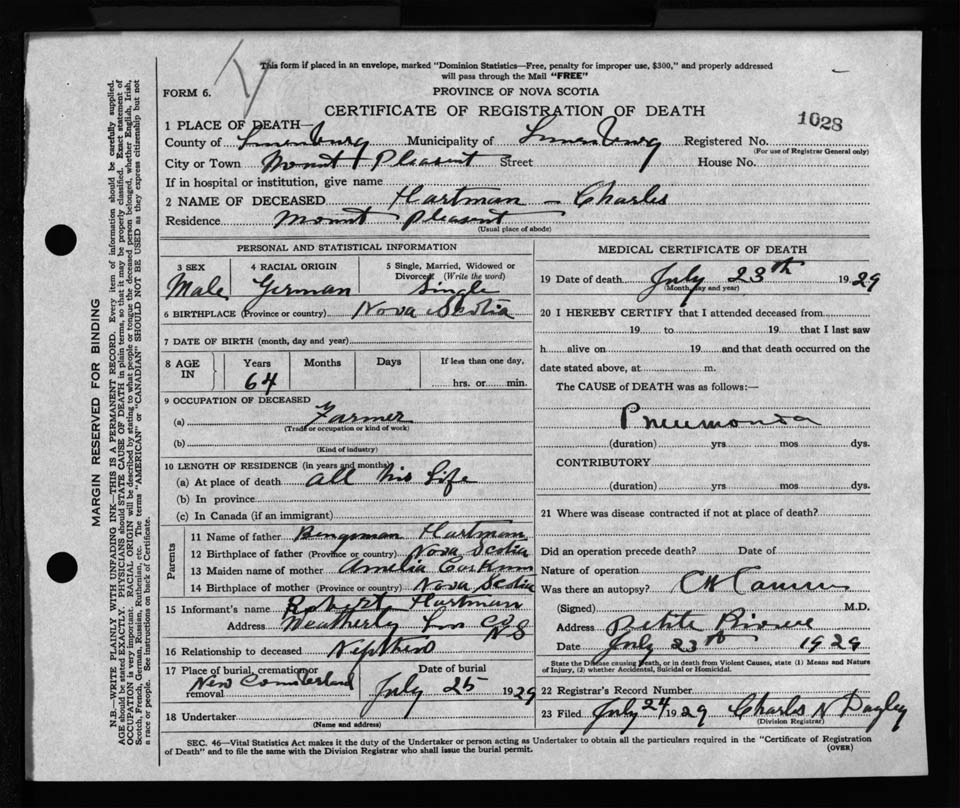 This form if placed in an envelope, marked "Dominion Statistics—Free, penalty for improper use, $300," and properly addressed
will pass through the Mail "FREE"
FORM 6.
PROVINCE OF NOVA SCOTIA
CERTIFICATE OF REGISTRATION OF DEATH
1028
1 PLACE OF DEATH—
County of Lunenburg Municipality of Lunenburg Registered No.
(For use of Registrar General only)
City or Town Mount Pleasent Street House No.
If in hospital or institution, give name
2 NAME OF DECEASED Hartman — Charles
Residence Mount Pleasent
(Usual place of abode)
PERSONAL AND STATISTICAL INFORMATION
3 SEX Male
4 RACIAL ORIGIN German
5 Single, Married, Widowed or Divorced (Write the word) Single
6 BIRTHPLACE (Province or country) Nova Scotia
7 DATE OF BIRTH (month, day and year)
8 AGE IN Years 64 Months Days If less than one day, hrs. or min.
9 OCCUPATION OF DECEASED
(a) Farmer
(Trade or occupation or kind of work)
(b)
(Kind of industry)
10 LENGTH OF RESIDENCE (in years and months)
(a) At place of death all his life
(b) In province
(c) In Canada (if an immigrant)
Parents
11 Name of father Hartman
12 Birthplace of father (Province or country) Nova Scotia
13 Maiden name of mother Amelia
14 Birthplace of mother (Province or country) Nova Scotia
15 Informant's name Robert Hartman
Address Weatherly Lun Co NS
16 Relationship to deceased
17 Place of burial, cremation or removal New
Date of burial July 25 1929
18 Undertaker
(Name and address)
MEDICAL CERTIFICATE OF DEATH
19 Date of death July 23th 1929
(Month, day and year)
20 I HEREBY CERTIFY that I attended deceased from
19 to 19 that I last saw
h alive on 19 and that death occurred on the
date stated above, at m.
The CAUSE of DEATH was as follows:—
Pneumonia
(duration) yrs mos dys.
CONTRIBUTORY
(duration) yrs mos dys.
21 Where was disease contracted if not at place of death?
Did an operation precede death? Date of
Nature of operation
Was there an autopsy?
(Signed) M.D.
Address Petite Riviere
Date July 23th 1929
State the Disease causing Death, or in death from Violent Causes, state (1) Means and Nature
of Injury, (2) whether Accidental, Suicidal or Homicidal.
22 Registrar's Record Number
23 Filed July 24/1929 Charles N
(Division Registrar)
SEC. 46—Vital Statistics Act makes it the duty of the Undertaker or person acting as Undertaker to obtain all the particulars required in the "Certificate of Registration
of Death" and to file the same with the Division Registrar who shall issue the burial permit.
(OVER)
MARGIN RESERVED FOR BINDING
N.B.—WRITE PLAINLY WITH UNFADING INK—THIS IS A PERMANENT RECORD. Every item of information should be carefully supplied.
AGE should be stated EXACTLY. PHYSICIANS should STATE CAUSE OF DEATH in plain terms, so that it may be properly classified. Exact statement of
OCCUPATION is very important. RACIAL ORIGIN will be described by stating to what people or tongue the deceased person belonged, whether English, Irish,
Scotch, French, German, Russian, Ruthenian, etc. The terms "AMERICAN" or "CANADIAN" SHOULD NOT BE USED as they express citizenship but not
a race or people. See instructions on back of Certificate.